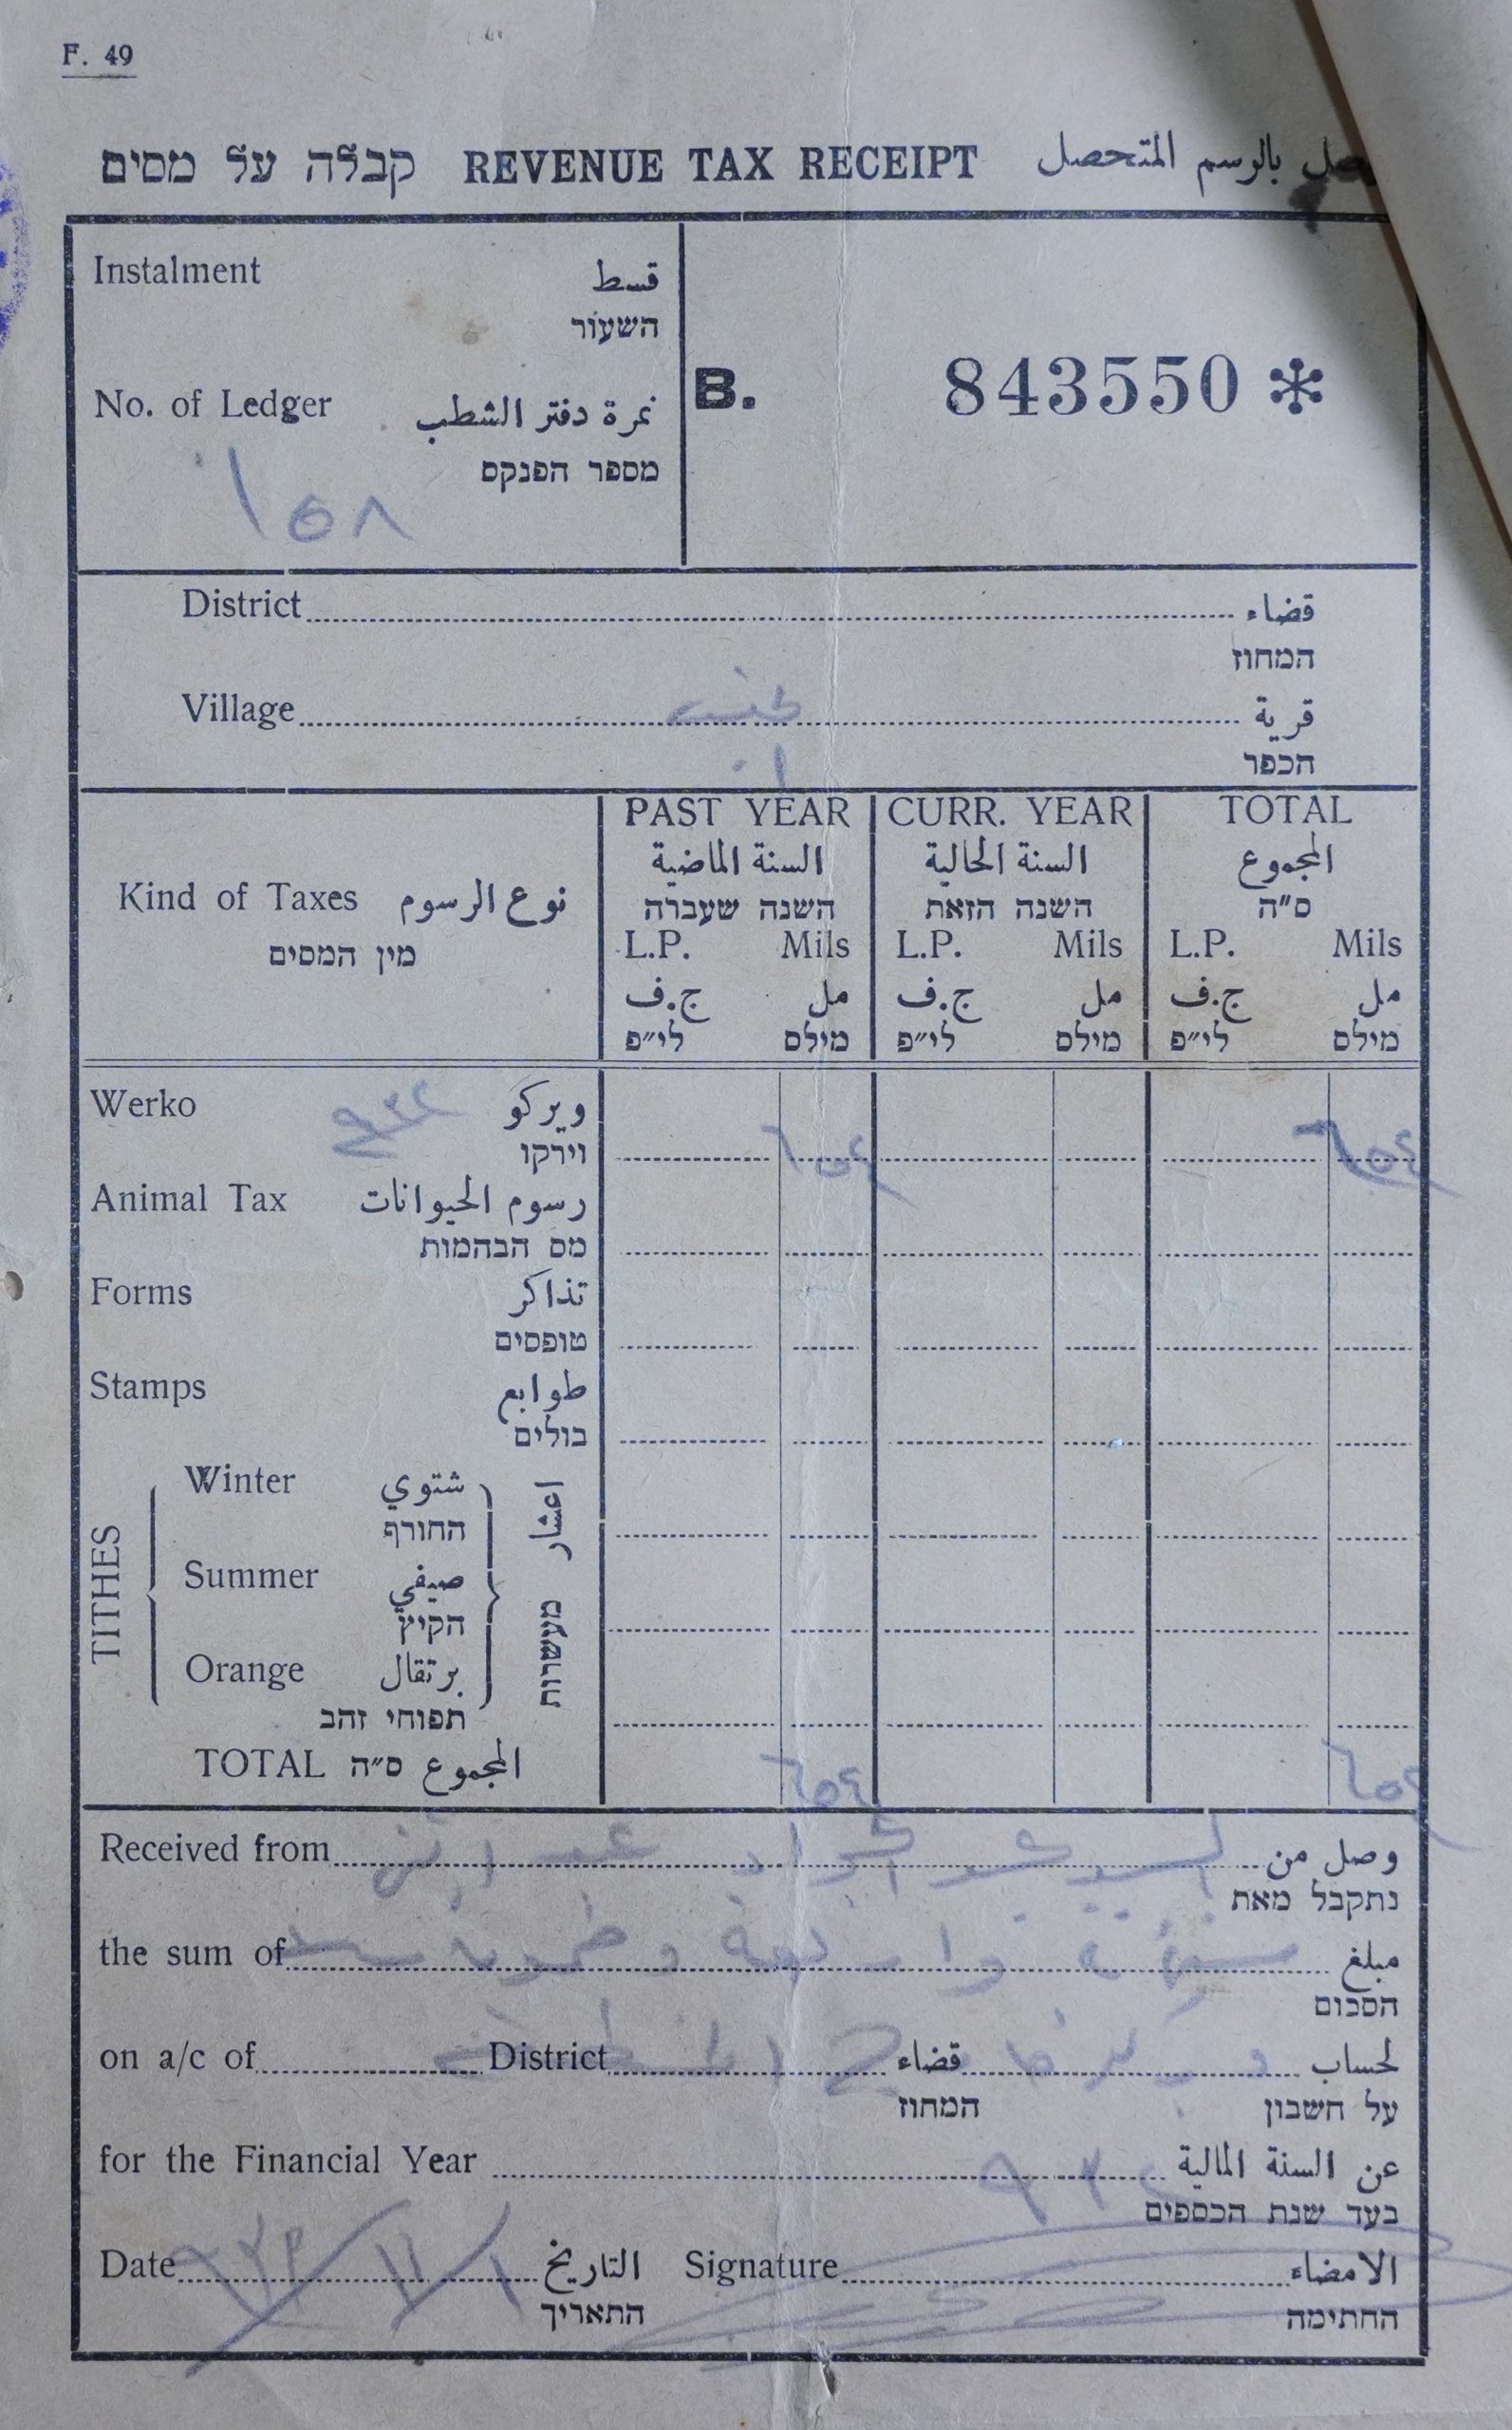 F. 49
קבלה על מסים REVENUE TAX RECEIPT بالرسم المتحصل
Instalment قسط
השעור
No. of Ledger نمرة دفتر الشطب
מספר הפנקס
١٥٨
B. 843550 *
District قضاء
המחוז
Village قرية
הכפר
Kind of Taxes نوع الرسوم
מין המסים
PAST YEAR CURR. YEAR TOTAL
السنة الماضية السنة الحالية المجموع
השנה שעברה השנה הזאת ס״ה
L.P. Mils L.P. Mils L.P. Mils
ج.ف مل ج.ف مل ج.ف مل
לי״פ מילס לי״פ מילס לי״פ מילס
Werko ويركو
וירקו
٦٥٤ ٦٥٤
Animal Tax رسوم الحيوانات
מס הבהמות
Forms تذاكر
טופסים
Stamps طوابع
בולים
TITHES اعشار מעשרות
Winter شتوي
החורף
Summer صيفي
הקיץ
Orange برتقال
תפוחי זהב
TOTAL ס״ה المجموع
٦٥٤ ٦٥٤
Received from وصل من
נתקבל מאת
the sum of ستمائة واربعة وخمسون مبلغ
הסכום
on a/c of District قضاء لحساب
המחוז על חשבון
for the Financial Year عن السنة المالية
בעד שנת הכספים
Date التاريخ Signature الامضاء
התאריך החתימה